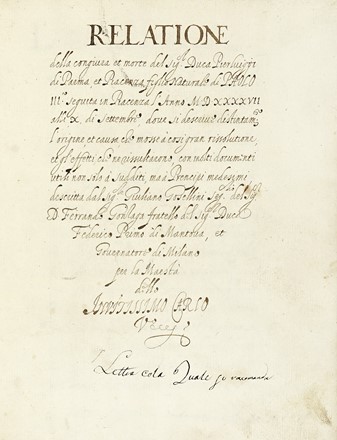 RELATIONE
della congiura et morte del Sig.r Duca Pierluigi
di Parma, et Piacenza figlio Naturale di PAOLO
III.o Seguita in Piacenza l'Anno M.D.XXXXVII
alli X. di Settembre dove si descrive
l'origine et cause che mosse à cosi gran rissolutione,
et gl'effetti che ne con molti documenti
utili non solo à sudditi, ma à Prencipi medesimi
descritta dal Sig.r Giuliano Gosellini Seg.rio del Sig.r
D Ferrando Gonzaga fratello del Sig.r Duca
Federico Primo di Mantova, et
Governatore di Milano
per la Maestà
dello
INVITTISSIMO CARLO
V
Lettra Quale